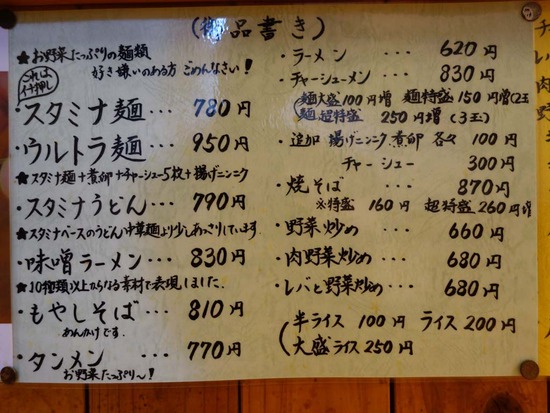 (御品書き)
★お野菜たっぷりの麺類
好き嫌いのある方 ごめんなさい！
これはイチ押し
・スタミナ麺・・・780円
・ウルトラ麺・・・950円
★スタミナ麺＋煮卵＋チャーシュー5枚＋揚げニンニク
・スタミナうどん・・・790円
★スタミナベースのうどん 中華麺より少しあっさりしています
・味噌ラーメン・・・830円
★10種類以上からなる素材で表現しました。
・もやしそば・・・810円
あんかけです。
・タンメン・・・770円
お野菜たっぷり～！
・ラーメン・・・620円
・チャーシューメン・・・830円
(麺大盛100円増 麺特盛150円増(2玉)
麺超特盛 250円増(3玉)
・追加 揚げニンニク 煮卵 各々 100円
チャーシュー 300円
・焼そば・・・870円
※特盛 160円 超特盛260円増
・野菜炒め・・・660円
・肉野菜炒め・・・680円
・レバと野菜炒め・・・680円
(半ライス 100円 ライス 200円
大盛ライス250円